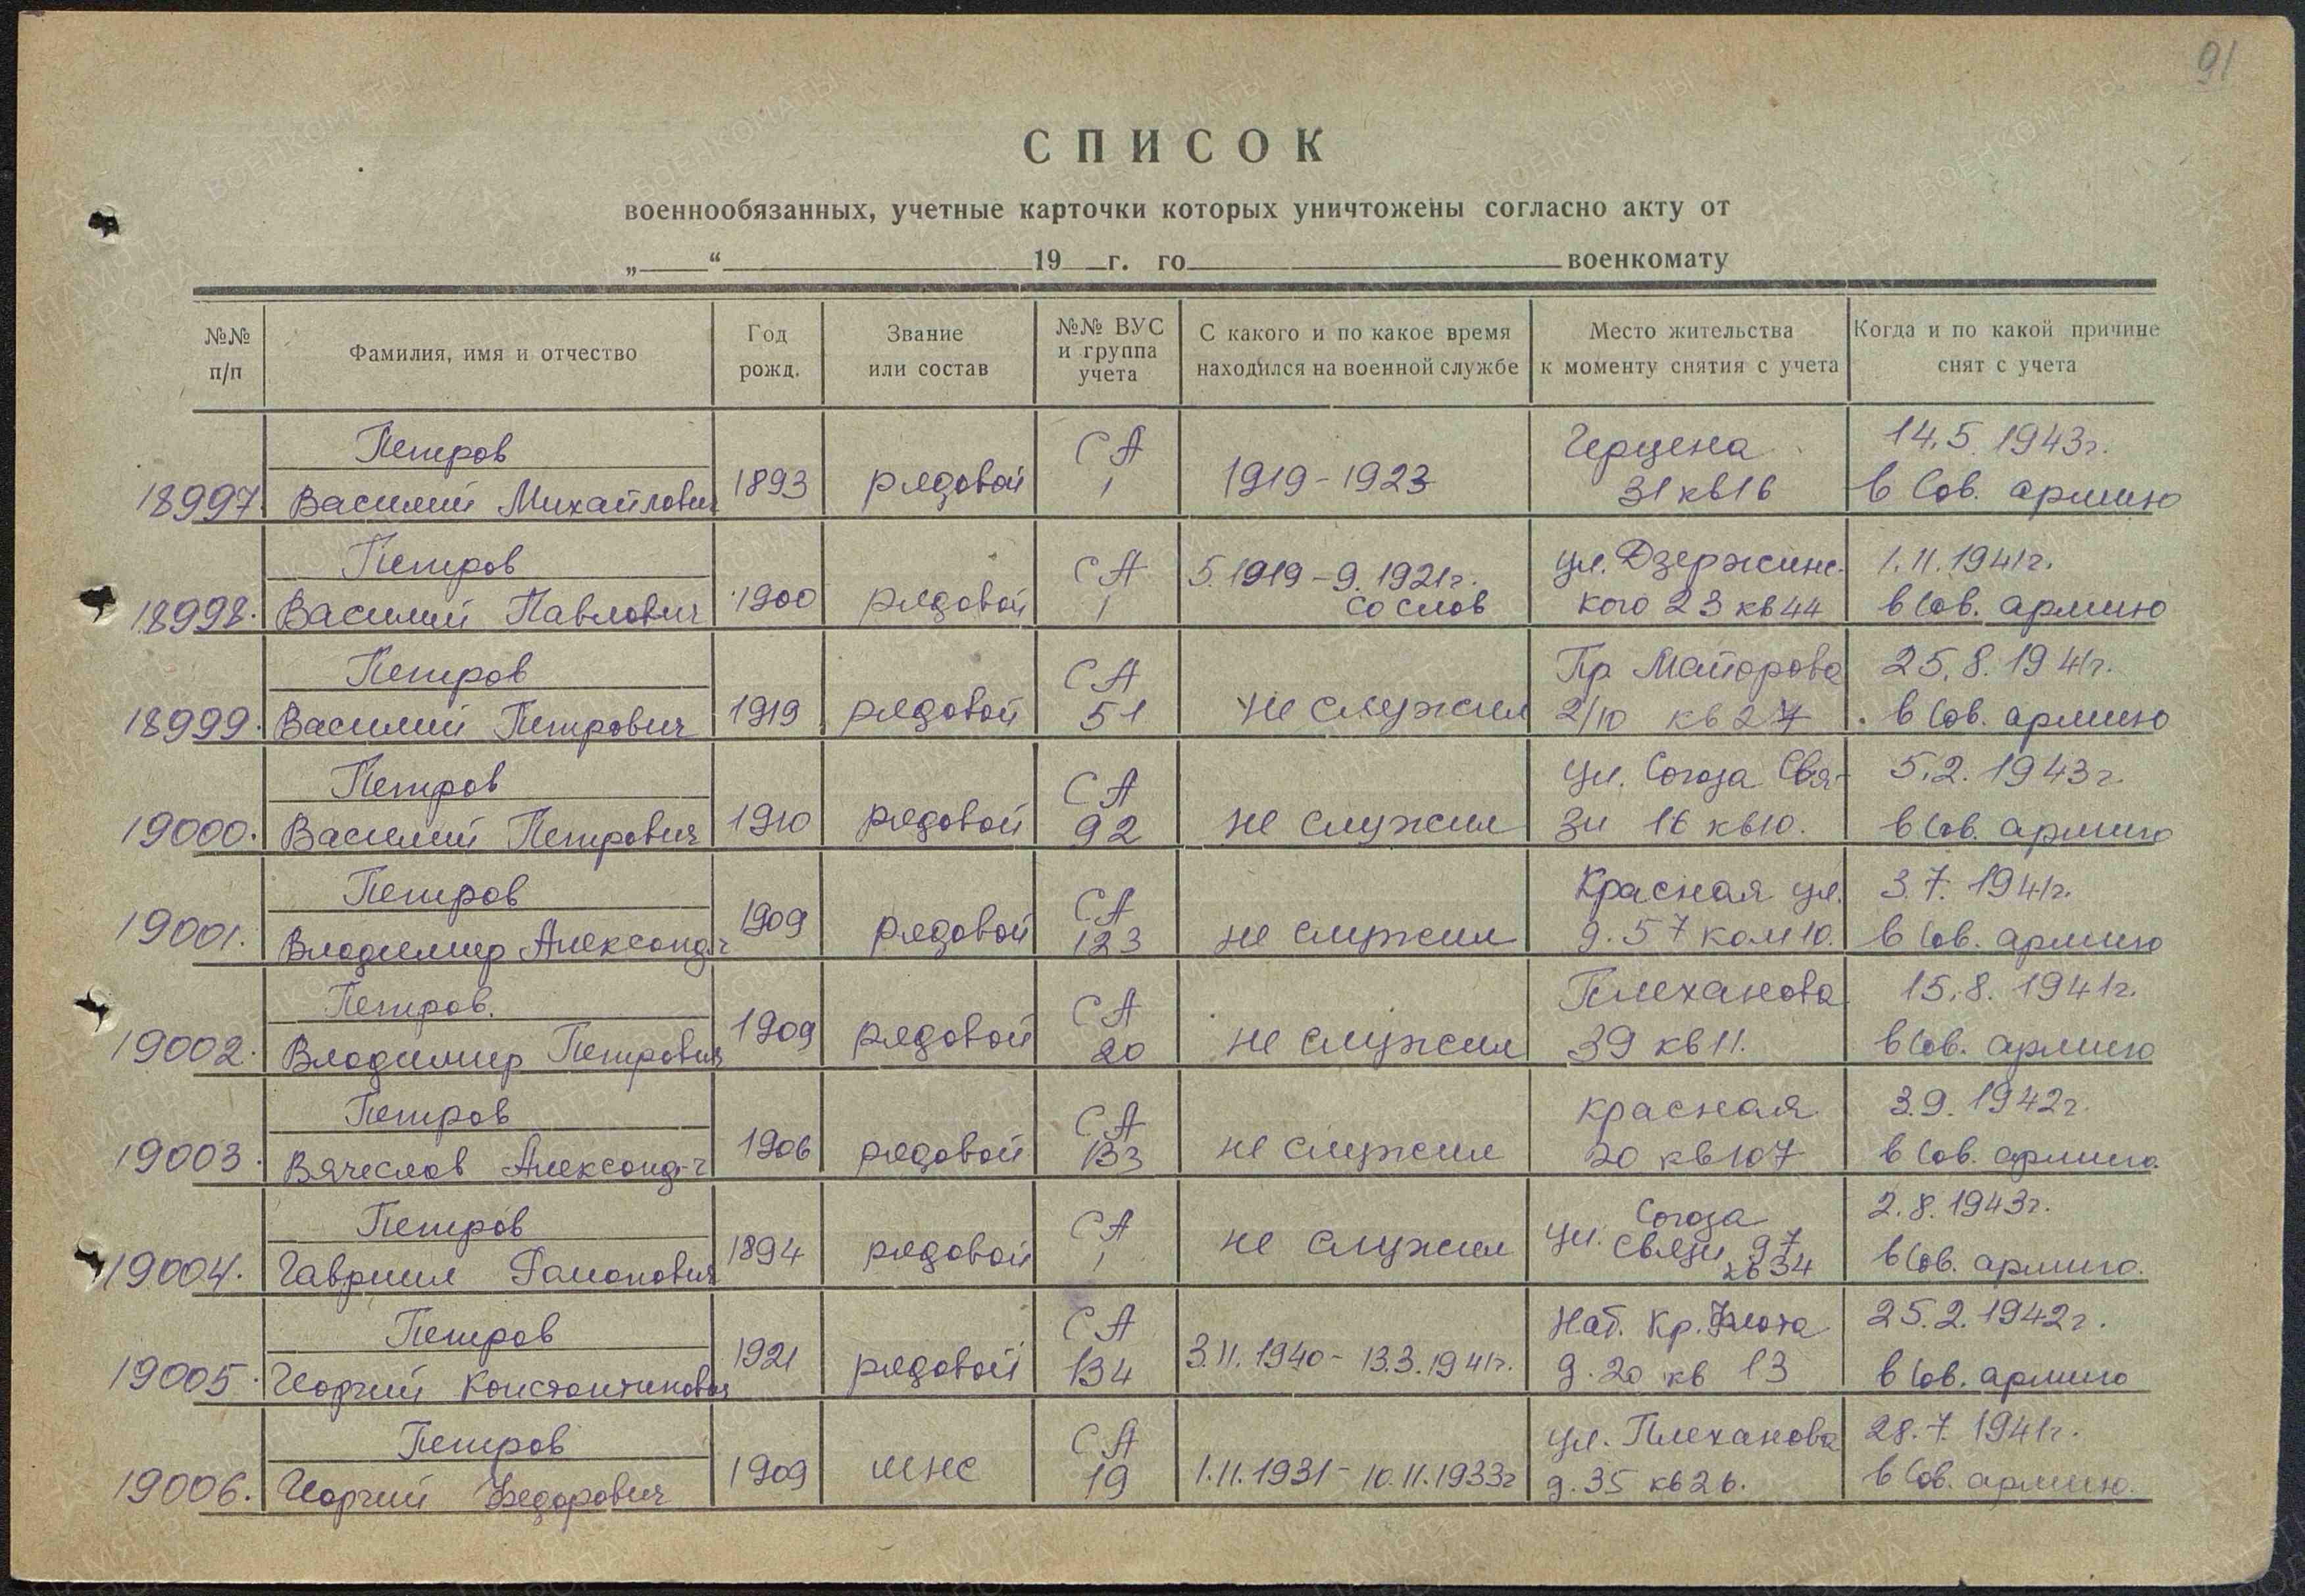 91
СПИСОК
военнообязанных, учетные карточки которых уничтожены согласно акту от
„ “ 19 г. го военкомату
№№ п/п
Фамилия, имя и отчество
Год рожд.
Звание или состав
№№ ВУС и группа учета
С какого и по какое время находился на военной службе
Место жительства к моменту снятия с учета
Когда и по какой причине снят с учета
Петров СА Герцена 14.5.1943г.
18997. Василий Михайлович 1893 рядовой 1 1919-1923 31 кв 16 в Сов. армию
Петров СА 5.1919-9.1921г. ул. Дзержинс- 1.11.1941г.
18998. Василий Павлович 1900 рядовой 1 со слов кого 23 кв 44 в Сов. армию
Петров СА Пр. Майорова 25.8.1941г.
18999. Василий Петрович 1919 рядовой 51 не служил 2/10 кв 27 в Сов. армию
Петров СА ул. Союза Свя- 5.2.1943г.
19000. Василий Петрович 1910 рядовой 92 не служил зи 16 кв 10. в Сов. армию
Петров СА Красная ул. 3.7.1941г.
19001. Владимир Александ-ч 1909 рядовой 123 не служил д. 57 ком 10. в Сов. армию
Петров. СА Плеханова 15.8.1941г.
19002. Владимир Петрович 1909 рядовой 20 не служил 39 кв 11. в Сов. армию
Петров СА Красная 3.9.1942г.
19003. Вячеслав Александ-ч 1906 рядовой 133 не служил 20 кв 107 в Сов. армию.
Петров СА ул. Союза 2.8.1943г.
19004. Гавриил 1894 рядовой 1 не служил Связи 97 кв 34 в Сов. армию.
Петров СА Наб. Кр. Флота 25.2.1942г.
19005. Георгий Константинович 1921 рядовой 134 3.11.1940- 13.3.1941г. д. 20 кв 13 в Сов. армию
Петров СА ул. Плеханова 28.7.1941г.
19006. Георгий Федорович 1909 мнс 19 1.11.1931- 10.11.1933г д. 35 кв 26. в Сов. армию.